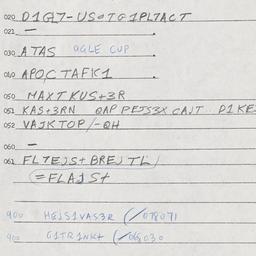 020 D1GL7-US0TG1PL7ACT
021 —
030 ATAS OGLE CUP
040 APOC TAFK1
050 MAXT KUS+3R
051 KAS+3RN QAP PETS3X CAJT D1KE
052 VAJKTOP/-QH
060 —
061 FLTEJS+BREJTL/
(=FLAJS+
900 HEJS1VAS3R (/078071
900 G1TR1NK+ (/068030